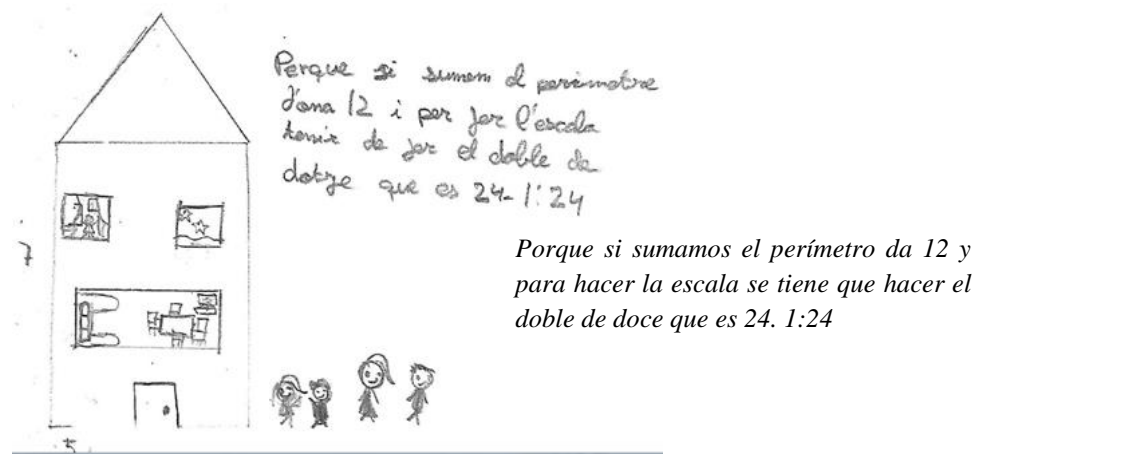 Perque si sumem el perimetre
dona 12 i per fer l'escala
tenir de fer el doble de
dotze que es 24. 1:24
Porque si sumamos el perímetro da 12 y
para hacer la escala se tiene que hacer el
doble de doce que es 24. 1:24
7
5